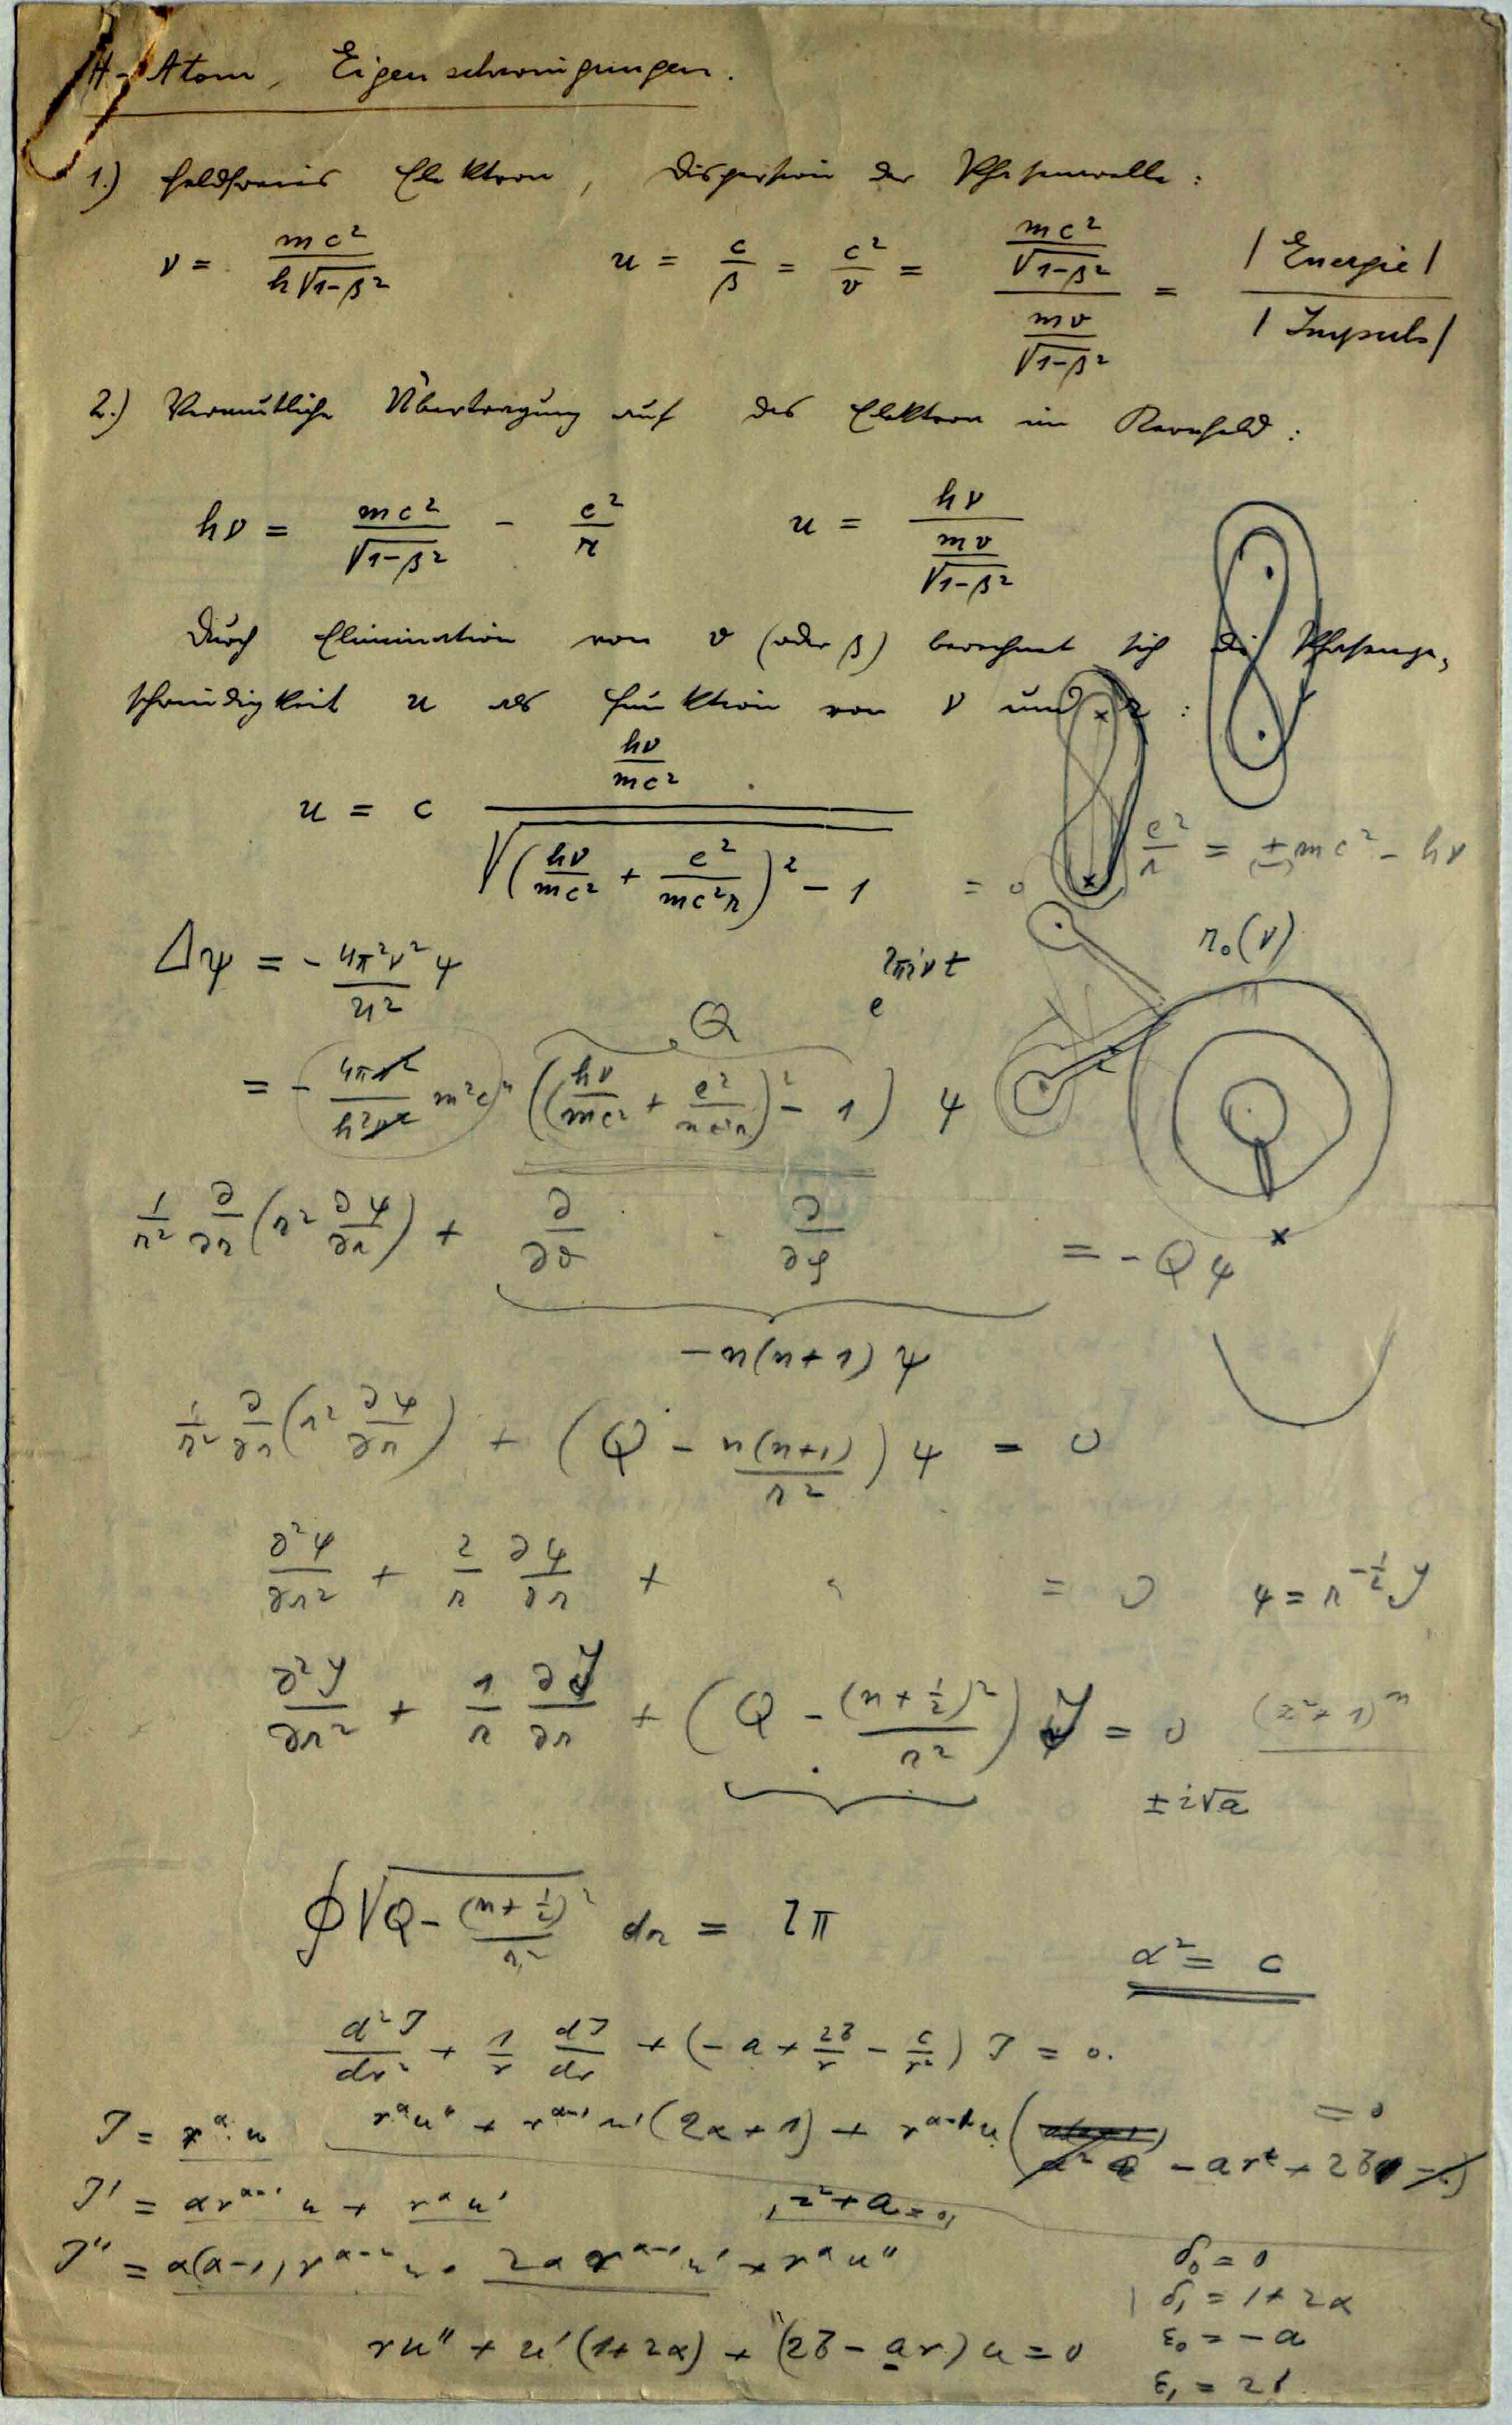 H-Atom, Eigenschwingungen.
1.) Feldfreies Elektron, Dispersion der Phasenwelle:
ν = mc² / h√1-β²   u = c/β = c²/v = (mc²/√1-β²) / (mv/√1-β²) = |Energie| / |Impuls|
2.) Vermutliche Übertragung auf das Elektron im Kernfeld:
hν = mc²/√1-β² - e²/r   u = hν / (mv/√1-β²)
Durch Elimination von v (oder β) berechnet sich die Phasenge-
schwindigkeit u als Funktion von ν und r:
u = c (hν/mc²) / √((hν/mc² + e²/mc²r)² - 1) = 0   e²/r = (±)mc² - hν
r₀(ν)
Δψ = - 4π²ν²/u² ψ   e^{2πiνt}
Q
= - 4πν²/h²ν² m²c⁴ ((hν/mc² + e²/mc²r)² - 1) ψ
1/r² ∂/∂r (r² ∂ψ/∂r) + ∂/∂ϑ   ∂/∂φ = - Qψ
-n(n+1) ψ
1/r² ∂/∂r (r² ∂ψ/∂r) + (Q - n(n+1)/r²) ψ = 0
∂²ψ/∂r² + 2/r ∂ψ/∂r + " = 0   ψ = r^{-1/2} J
∂²J/∂r² + 1/r ∂J/∂r + (Q - (n+½)²/r²) J = 0   (z²+1)ⁿ
±i√a
∮√Q - (n+½)²/r² dr = 2π
α² = c
d²J/dr² + 1/r dJ/dr + (-a + 2b/r - c/r²) J = 0.
J = r^α u   r^α u'' + r^{α-1} u' (2α+1) + r^{α-1} u ( - ar + 2b ) = 0
J' = αr^{α-1} u + r^α u'   z² + a = 0
J'' = α(α-1) r^{α-2} u + 2α r^{α-1} u' + r^α u''
δ₀ = 0
δ₁ = 1+2α
ru'' + u'(1+2α) + (2b - ar) u = 0   ε₀ = -a
ε₁ = 2b